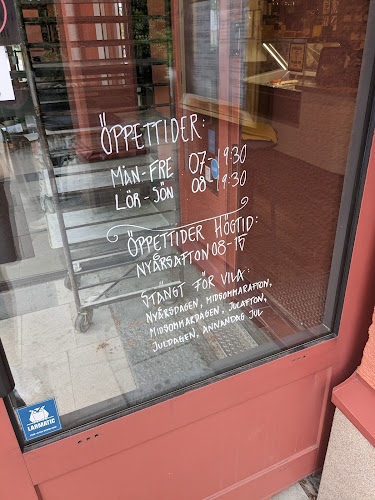 ÖPPETTIDER:
MÅN-FRE : 07-19:30
LÖR-SÖN : 08-19:30
ÖPPETTIDER HÖGTID:
NYÅRSAFTON 08-15
STÄNGT FÖR VILA:
NYÅRSDAGEN, MIDSOMMARAFTON,
MIDSOMMARDAGEN, JULAFTON,
JULDAGEN, ANNANDAG JUL
LARMATIC